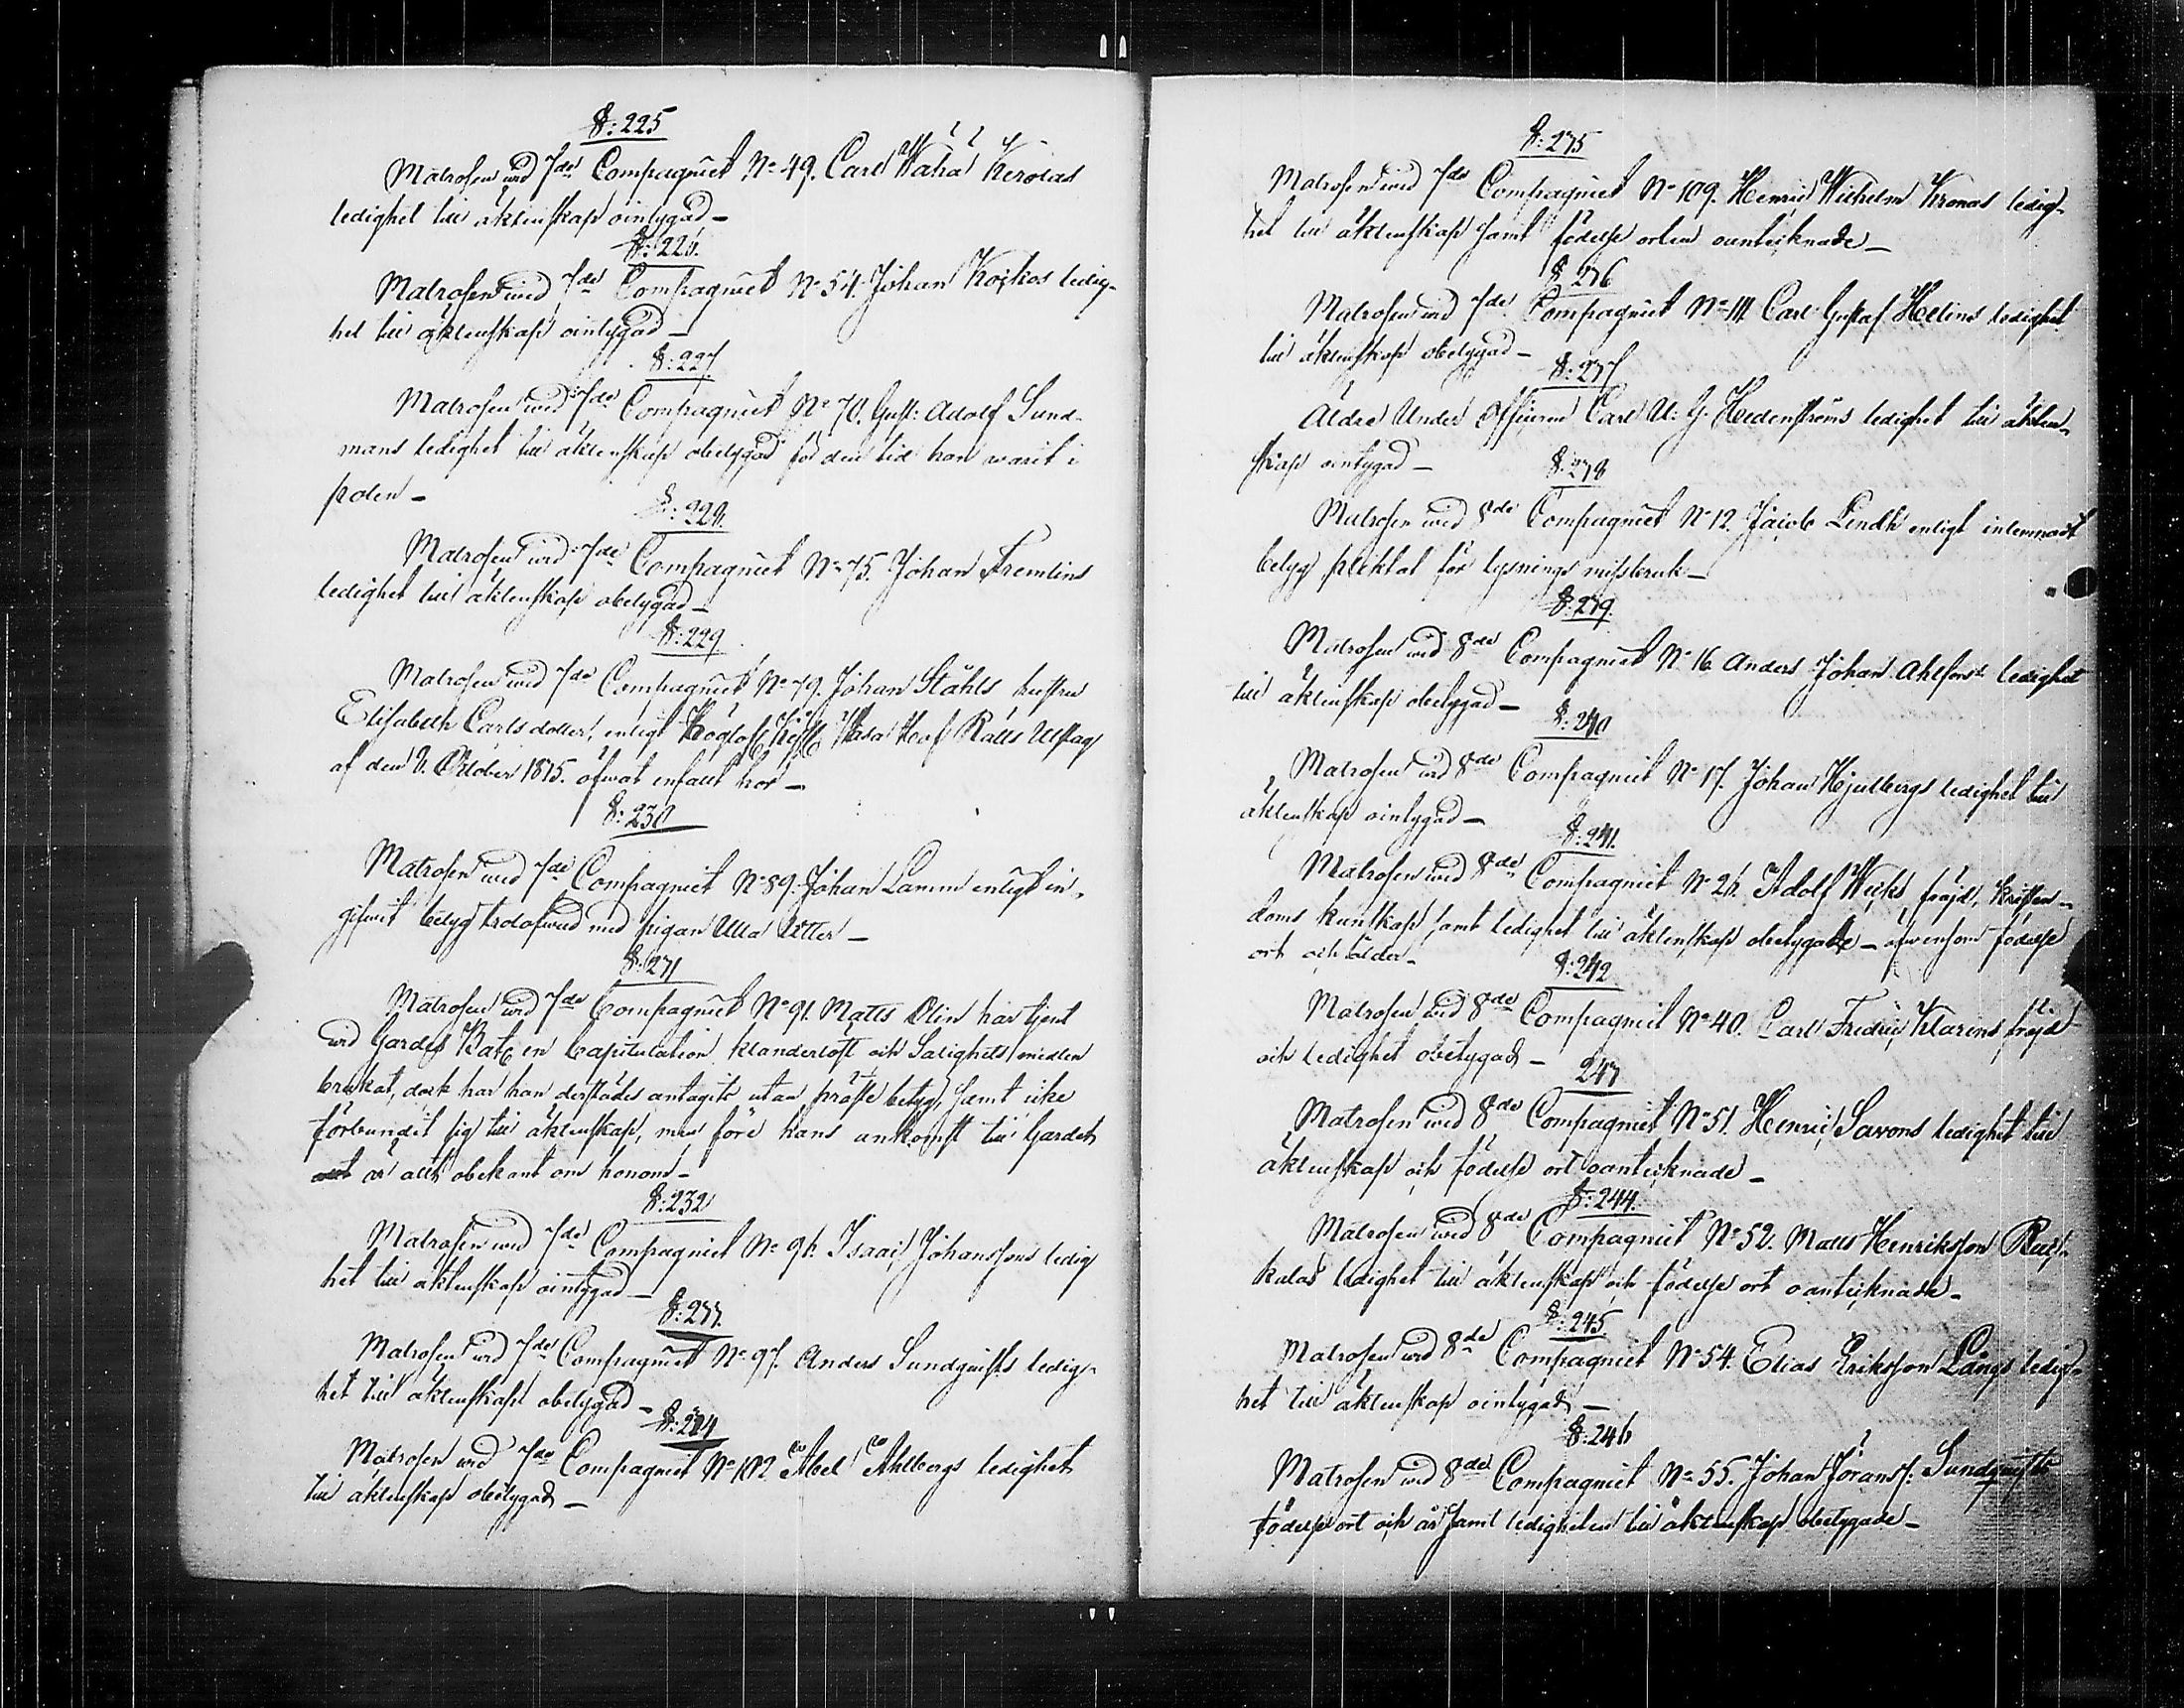 §: 225
Matrosen wid 7de Compagniet No 49. Carl Waha Kerolas
ledighet till äktenskap ointygad -
§: 226.
Matrosen wid 7de Compagniet No 54. Johan Koskos ledig-
het till äktenskap ointygad -
§: 227.
Matrosen wid 7de Compagniet No 70. Gust: Adolf Sund-
mans ledighet till äktenskap obetygad för den tid han warit i
§: 228.
Matrosen wid 7de Compagniet No 75. Johan Fremlins
ledighet till äktenskap obetygad -
§: 229
Matrosen wid 7de Compagniet No 79. Johan Ståhls hustru
Elisabeth Carlsdotter, enligt Wasa Hof Rätts Utslag
af den Oktober 1815. öfwat enfalt hor -
§: 230
Matrosen wid 7de Compagniet No 89. Johan Lamm enligt in-
gifwit betyg trolofwad med pigan Ulla Utter -
§: 231
Matrosen wid 7de Compagniet No 91. Matts Olin har tjent
wid Gardes Bat: en Capitulation klanderlöst och Salighets medlen
brukat, dock har han derstädes antagits utan präste betyg, samt icke
förbundit sig till äktenskap, men före hans ankomst till Gardet
är allt obekant om honom -
§: 232
Matrosen wid 7de Compagniet No 96. Isaac Johanssons ledig
het till äktenskap ointygad -
§: 233.
Matrosen wid 7de Compagniet No 97. Anders Sundquists ledig-
het till äktenskap obetygad -
§: 234
Matrosen wid 7de Compagniet No 102 Abel Ahlbergs ledighet
till äktenskap obetygad -
§: 235
Matrosen wid 7de Compagniet No 109. Henric Wilhelm Kronas ledig-
het till äktenskap samt födelse orten oantecknade -
§: 236
Matrosen wid 7de Compagniet No 111 Carl Gustaf Helins ledighet
till äktenskap obetygad -
§: 237
Äldre Under Officeren Carl U: G. Hedenströms ledighet till äkten-
skap ointygad -
§: 238
Matrosen wid 8de Compagniet No 12. Jacob Lindh enligt inlemnadt
betyg pliktat för lysnings missbruk -
§: 239.
Matrosen wid 8de Compagniet No 16 Anders Johan Ahlfors ledighet
till äktenskap obetygad -
§: 240
Matrosen wid 8de Compagniet No 17. Johan Hjulbergs ledighet till
äktenskap ointygad -
§: 241.
Matrosen wid 8de Compagniet No 26. Adolf Weeks, frejd, kristen-
doms kunskap samt ledighet till äktenskap obetygade - äfwensom födelse
ort och ålder -
§: 242
Matrosen wid 8de Compagniet No 40. Carl Fredric Klarens frejd
och ledighet obetygad -
243
Matrosen wid 8de Compagniet No 51. Henric Savons ledighet till
äktenskap och födelse ort oantecknade -
§: 244.
Matrosen wid 8de Compagniet No 52. Matts Henriksson
kalas ledighet till äktenskap och födelse ort oantecknade -
§: 245
Matrosen wid 8de Compagniet No 54. Elias Eriksson Långs ledig-
het till äktenskap ointygad -
§: 246
Matrosen wid 8de Compagniet No 55. Johan Jörans: Sundquists
födelse ort och år samt ledigheten till äktenskap obetygade -